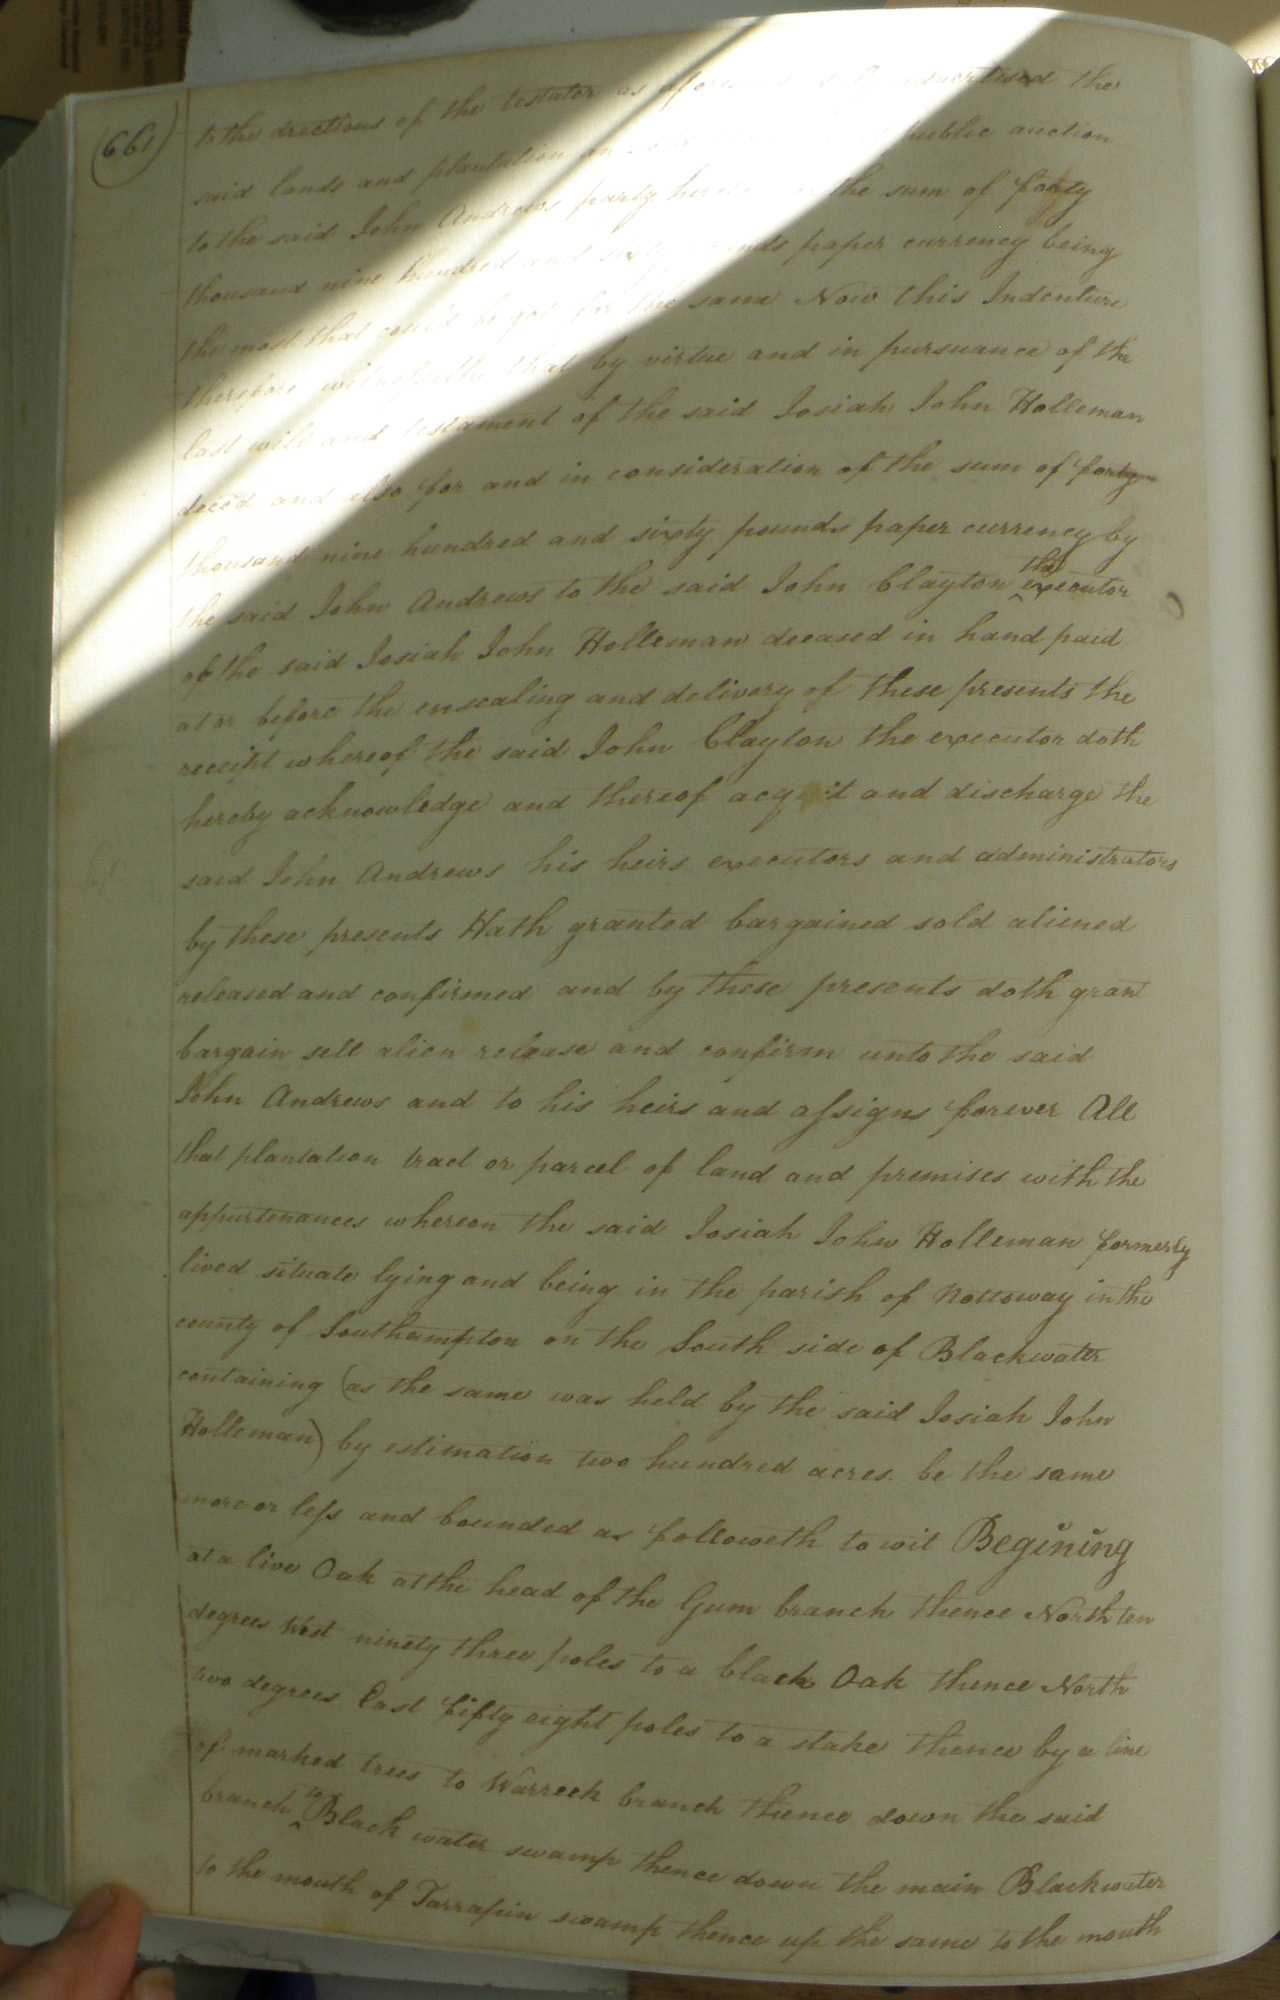 (661)
to the directions of the testator as advertised the
said lands and plantation and public auction
to the said John Andrews party hereto the sum of forty
thousand nine hundred and sixty pounds paper currency being
the most that could be got for the same Now this Indenture
therefore witnesseth that by virtue and in pursuance of the
last will and testament of the said Josiah John Holleman
deced and also for and in consideration of the sum of forty
thousand nine hundred and sixty pounds paper currency by
the said John Andrews to the said John Clayton the executor
of the said Josiah John Holleman deceased in hand paid
at or before the ensealing and delivery of these presents the
receipt whereof the said John Clayton the executor doth
hereby acknowledge and thereof acquit and discharge the
said John Andrews his heirs executors and administrators
by these presents Hath granted bargained sold aliened
released and confirmed and by these presents doth grant
bargain sell alien release and confirm unto the said
John Andrews and to his heirs and assigns forever All
that plantation tract or parcel of land and premises with the
appurtenances whereon the said Josiah John Holleman formerly
lived situate lying and being in the parish of Nottoway in the
county of Southampton on the South side of Blackwater
containing (as the same was held by the said Josiah John
Holleman) by estimation two hundred acres be the same
more or less and bounded as followeth to wit Begining
at a live Oak at the head of the Gum branch thence North ten
degrees West ninety three poles to a black Oak thence North
two degrees East fifty eight poles to a stake thence by a line
of marked trees to Warreek branch thence down the said
branch to Black water swamp thence down the main Blackwater
to the mouth of Tarrapin swamp thence up the same to the mouth